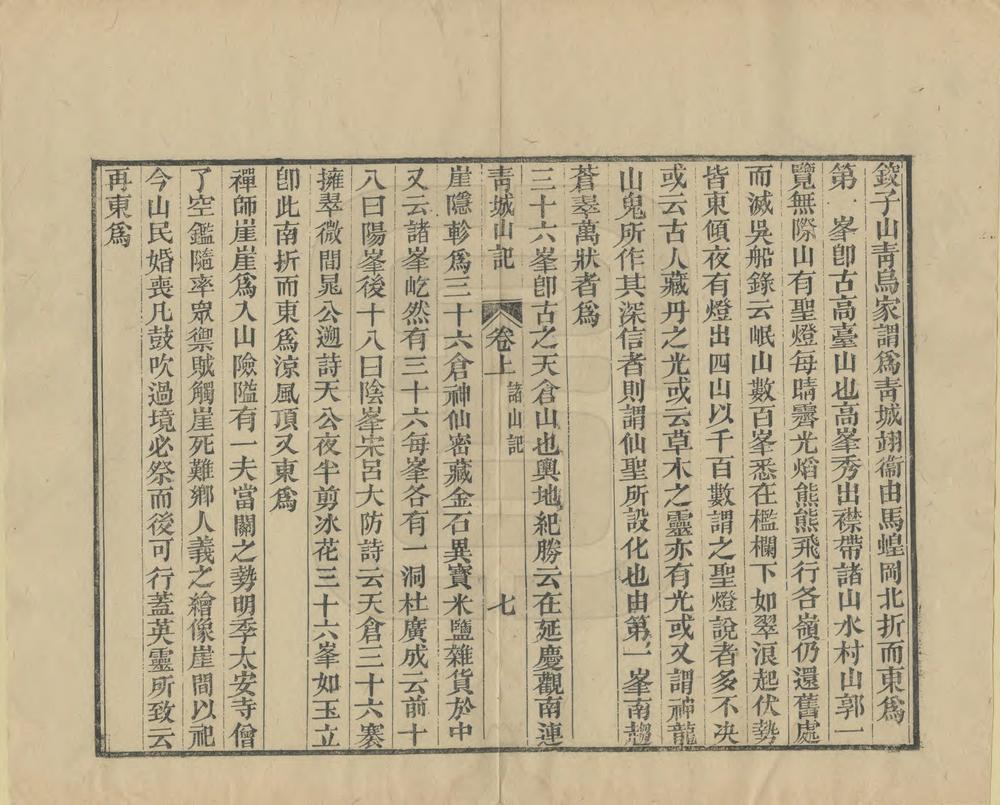 釵子山靑烏家謂爲靑城翊衞由馬蝗岡北折而東爲
第一峯卽古高臺山也高峯秀出襟帶諸山水村山郭一
覽無際山有聖燈每晴霽光熖熊熊飛行各嶺仍還舊處
而滅吳船錄云岷山數百峯悉在檻欄下如翠浪起伏勢
皆東傾夜有燈出四山以千百數謂之聖燈說者多不决
或云古人藏丹之光或云草木之靈亦有光或又謂神龍
山鬼所作其深信者則謂仙聖所設化也由第一峯南趨
蒼翠萬狀者爲
三十六峯卽古之天倉山也輿地紀勝云在延慶觀南連
靑城山記 卷上 諸山記 七
崖隱軫爲三十六倉神仙密藏金石異寶米鹽雜貨於中
又云諸峯屹然有三十六每峯各有一洞杜廣成云前十
八曰陽峯後十八曰陰峯宋呂大防詩云天倉三十六寨
擁翠微間晁公遡詩天公夜半剪冰花三十六峯如玉立
卽此南折而東爲涼風頂又東爲
禪師崖崖爲入山險隘有一夫當關之勢明季太安寺僧
了空鑑隨率眾禦賊觸崖死難鄉人義之繪像崖間以祀
今山民婚喪凡鼓吹過境必祭而後可行蓋英靈所致云
再東爲